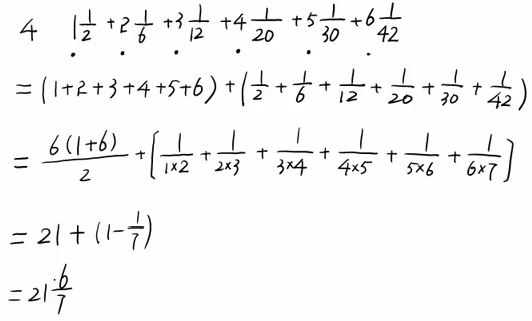 4 1 1/2 + 2 1/6 + 3 1/12 + 4 1/20 + 5 1/30 + 6 1/42
= (1+2+3+4+5+6) + (1/2 + 1/6 + 1/12 + 1/20 + 1/30 + 1/42)
= 6(1+6)/2 + [1/1×2 + 1/2×3 + 1/3×4 + 1/4×5 + 1/5×6 + 1/6×7]
= 21 + (1 - 1/7)
= 21 6/7